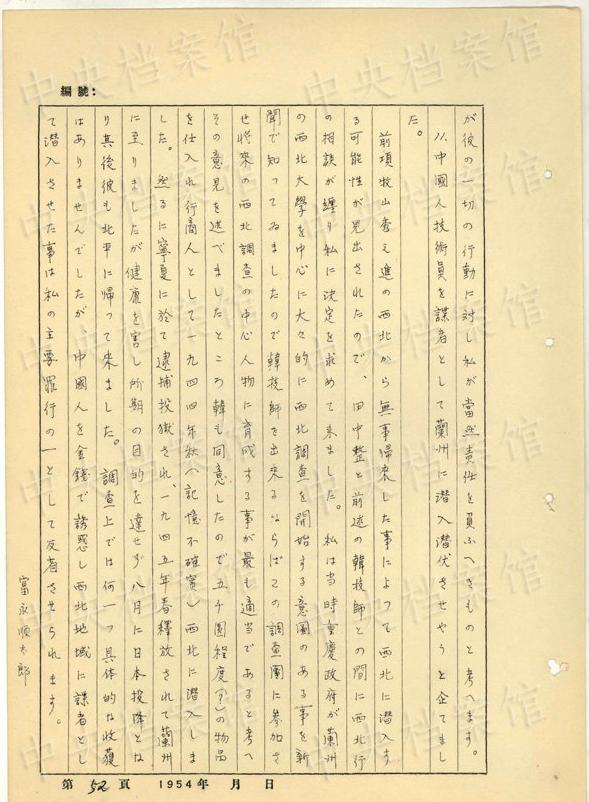 編號：
が彼の一切の行動に対し私が当然責任を負ふべきものと考へます。
11、中國人技術員を諜者として蘭州に潜入潜伏させやうと企てまし
た。
前項牧山春之進の西北から無事帰来した事によって西北に潜入す
る可能性が見出されたので、田中整と前述の韓技師との間に西北行
の相談が纏り私に決定を求めて来ました。私は当時重慶政府が蘭州
の西北大學を中心に大々的に西北調査を開始する意図のある事を新
聞で知ってゐましたので韓技師を出来るならばこの調査團に参加さ
せ将来の西北調査の中心人物に育成する事が最も適当であると考へ
その意見を述べましたところ韓も同意したので五千圓程度(？)の物品
を仕入れ行商人として一九四四年秋(記憶不確実)西北に潜入しま
した。然るに寧夏に於て逮捕投獄され、一九四五年春釋放されて蘭州
に至りましたが健康を害し所期の目的を達せず八月に日本投降とな
り其後彼も北平に帰って来ました。調査上では何一つ具体的な收獲
はありませんでしたが、中國人を金錢で誘惑し西北地域に諜者とし
て潜入させた事は私の主要罪行の一として反省させられます。
富永順太郎
第 52 頁 1954年 月 日
中央档案馆